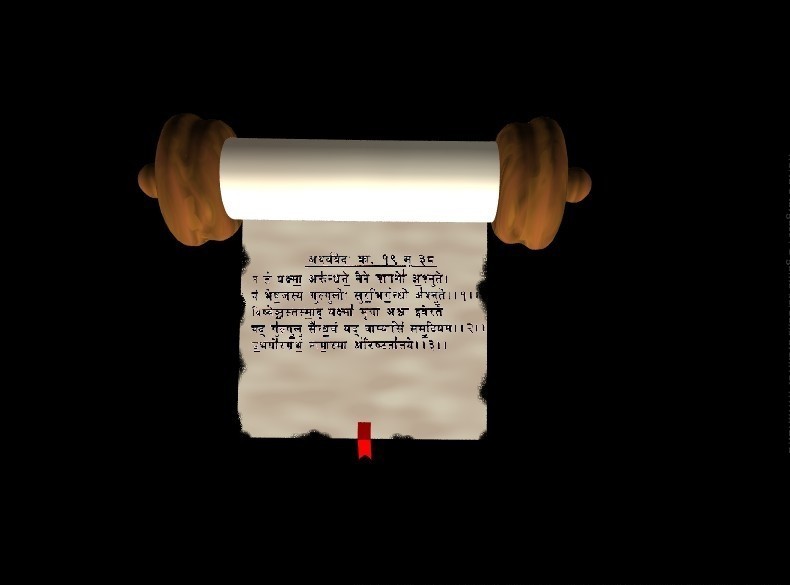 अथर्ववेदः का. १९ सू ३८
न तं यक्ष्मा अरुन्धते नैनं शपथो अश्नुते।
यं भेषजस्य गुल्गुलोः सुरभिर्गन्धो अश्नुते।।१।।
विष्वञ्चस्तस्माद् यक्ष्मा मृगा अश्वा इवेरते
यद् गुल्गुलु सैन्धवं यद् वाप्यासि समुद्रियम।।२।।
उभयोरग्रभं नामास्मा अरिष्टतातये।।३।।